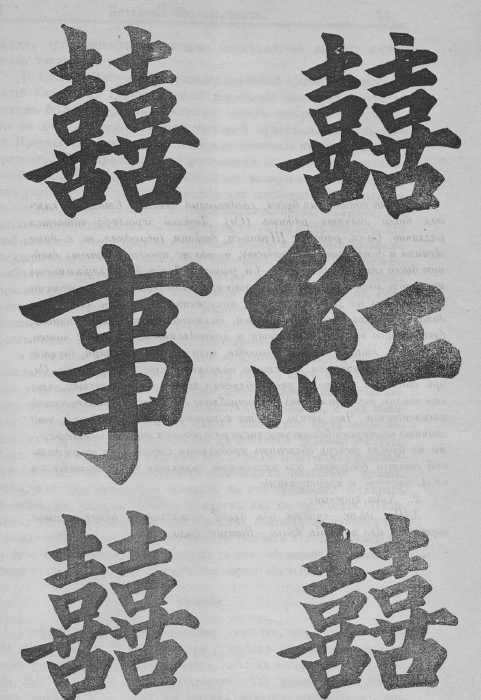 囍紅囍
囍事囍